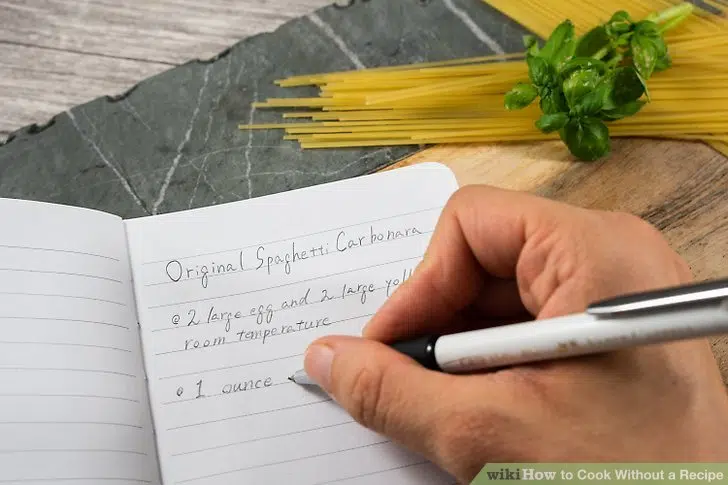 Original Spaghetti Carbonara
2 large egg and 2 large yol
room temperature
1 ounce
wikiHow to Cook Without a Recipe